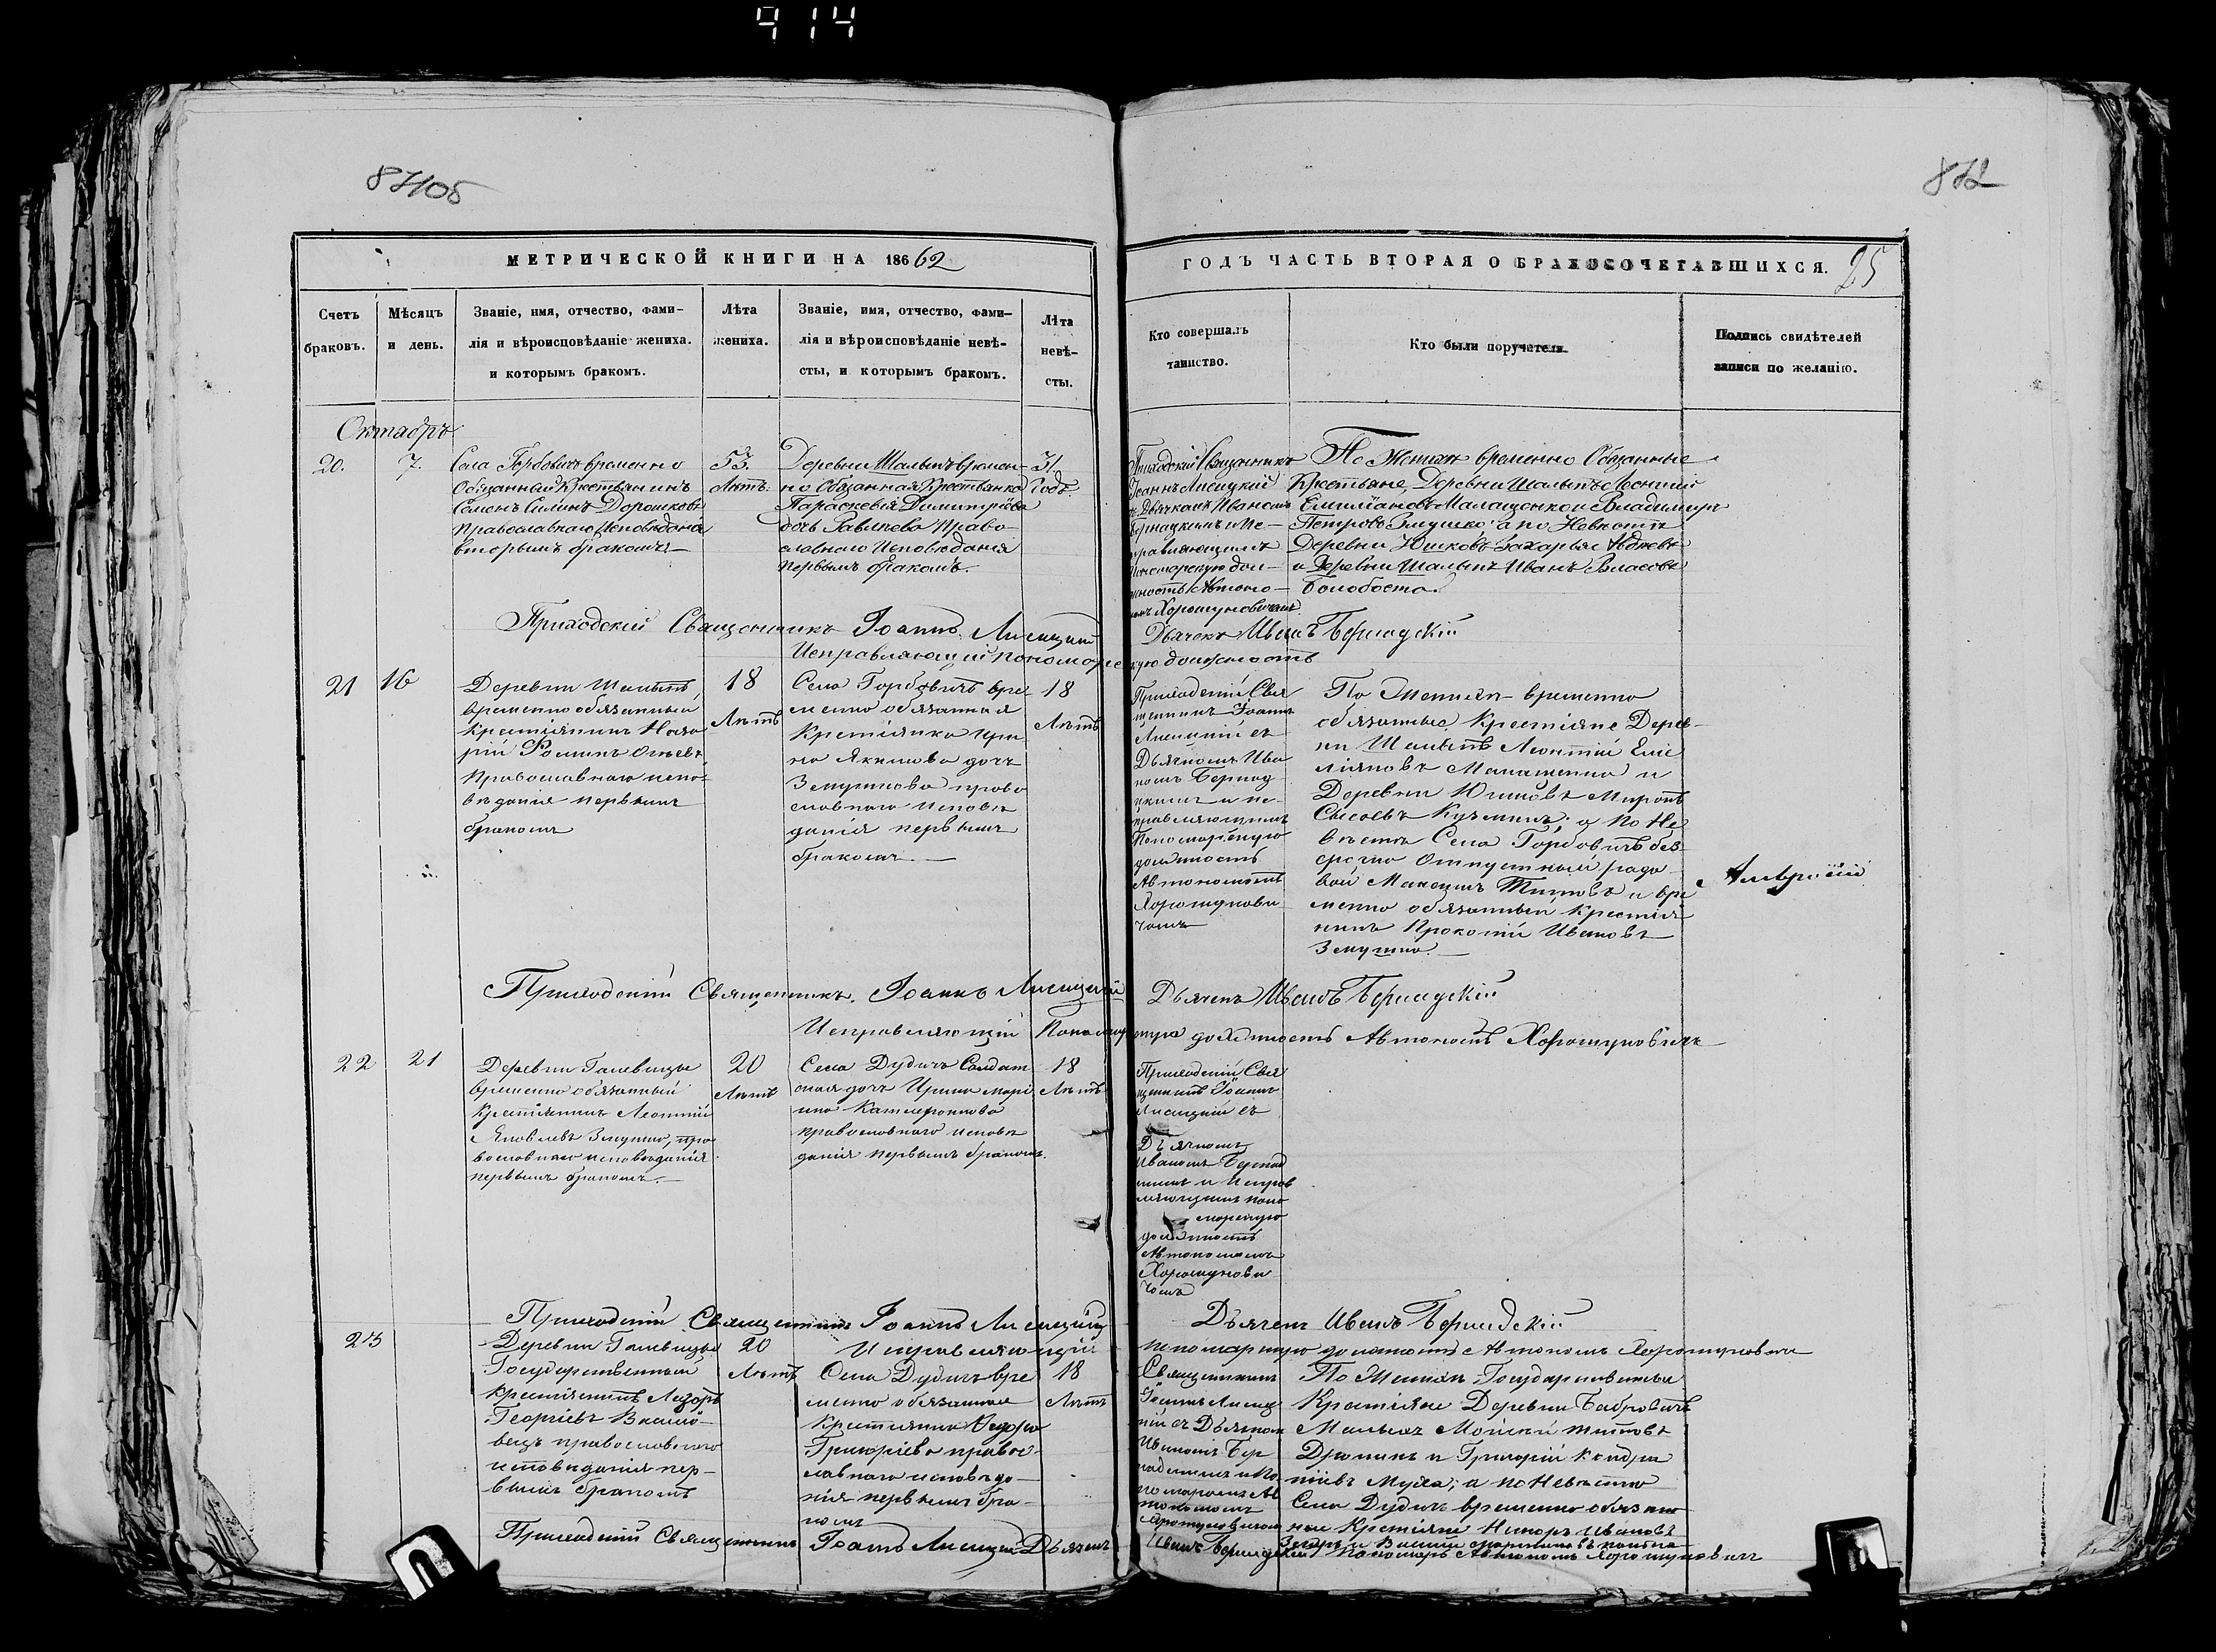 914
871об
872
МЕТРИЧЕСКОЙ КНИГИ НА 18662
ГОДЪ ЧАСТЬ ВТОРАЯ О БРАКОСОЧЕТАВШИХСЯ.
25
Счетъ браковъ.
Мѣсяцъ и день.
Званіе, имя, отчество, фами-
лія и вѣроисповѣданіе жениха.
и которымъ бракомъ.
Лѣта жениха.
Званіе, имя, отчество, фами-
лія и вѣроисповѣданіе невѣ-
сты, и которымъ бракомъ.
Лѣта невѣ-
сты.
Кто совершалъ
таинство.
Кто были поручители.
Подпись свидѣтелей
записи по желанію.
Октябрь
20.
7.
Села Горбовичъ временно
Обязанный Крестьянинъ
Семенъ Силинъ Дорошковъ
Православнаго Исповѣданія
вторымъ бракомъ
53.
Лѣтъ.
Деревни Шалыпъ времен-
но Обязанная Крестьянка
Параскевія Димитріева
дочь Право-
славнаго Исповѣданія
первымъ бракомъ.
31.
Годъ.
Приходскій Священникъ
Іоаннъ Лисицкій
съ Дьячкомъ Иваномъ
Бернадкимъ и Ис-
правляющимъ
Пономарскую дол-
жность Автоно-
момъ Хорошуновичемъ
По Жениху временно Обязанные
Крестьяне, Деревни Шалыпъ Леонтій
Емиліановъ Малащенко и Владимиръ
Петровъ Змушко а по Невѣсте
Деревни Юшковъ Захарья Авдеевъ
и Деревни Шалыпъ Иванъ Власовъ
Приходскій Священникъ Іоаннъ Лисицкій
Дьячекъ Иванъ Бернадскій
Исправляющій пономарскую должность
21
16
Деревни Шалыпъ,
временно обязанный
Крестіянинъ
Православнаго испо-
вѣданія первымъ
бракомъ
18
Лѣтъ
Села Горбовичъ вре-
менно обязанная
Крестіянка Ири
на Якимова дочь
Змушкова право
славнаго исповѣ
данія первымъ
бракомъ.
18
Лѣтъ
Приходскій Свя
щенникъ Іоаннъ
Лисицкій съ
Дьячкомъ Ива
номъ Бернад
скимъ и ис-
правляющимъ
Пономарскую
должность
Автономомъ
Хорошунови
чемъ
По Жениху временно
обязанные Крестіяне Дерев-
ни Шалыпъ Леонтій Еми
ліяновъ Малащенко и
Деревни Юшковъ Миронъ
Сысоевъ Кузминъ; а по Не
вѣсте Села Горбовичъ без
срочно Отпускный рядо
вой Максимъ Титовъ и вре
менно обязанный Крестія
нинъ Прокопій Ивановъ
Змушко.
Приходскій Священникъ Іоаннъ Лисицкій
Дьячекъ Иванъ Бернадскій
Исправляющій Пономарскую должность Автономъ Хорошуновичъ
22
21
Деревни Галевицы
временно обязанный
Крестіянинъ Леонтій
Яковлевъ Змушко, пра
вославнаго исповѣданія
первымъ бракомъ.
20
Лѣтъ
Села Дудичъ Солдат
ская дочь Ирина
православнаго исповѣ
данія первымъ бракомъ.
18
Лѣтъ
Приходскій Свя
щенникъ Іоаннъ
Лисицкій съ
Дьячкомъ
Иваномъ Бернад
скимъ и Исправ
ляющимъ поно
марскую
должность
Автономомъ
Хорошунови
чемъ
Приходскій Священникъ Іоаннъ Лисицкій
Дьячекъ Иванъ Бернадскій
Исправляющій пономарскую должность Автономъ Хорошуновичъ
23
Деревни Галевицы
Государственный
Крестіянинъ Лазорь
Георгіевъ
православнаго
исповѣданія пер-
вымъ бракомъ
20
Лѣтъ
Села Дудичъ вре
менно обязанная
Крестіянка Ѳедора
Григоріева право-
славнаго исповѣда-
нія первымъ бра-
комъ
18
Лѣтъ
Священникъ
Іоаннъ Лисиц
кій съ Дьячком
Иваномъ Бер
надскимъ и По-
номаромъ Ав
тономомъ
Хорошуновичем
По Жениху Государственные
Крестіяне Деревни Бобровичъ
Титовъ
и Григорій Кондра
тіевъ Муха; а по Невѣсте
Села Дудичъ временно обязан
ные Крестіяне Никоръ Ивановъ
Приходскій Священникъ Іоаннъ Лисицкій Дьячекъ
Иванъ Бернадскій Пономарь Автономъ Хорошуновичъ